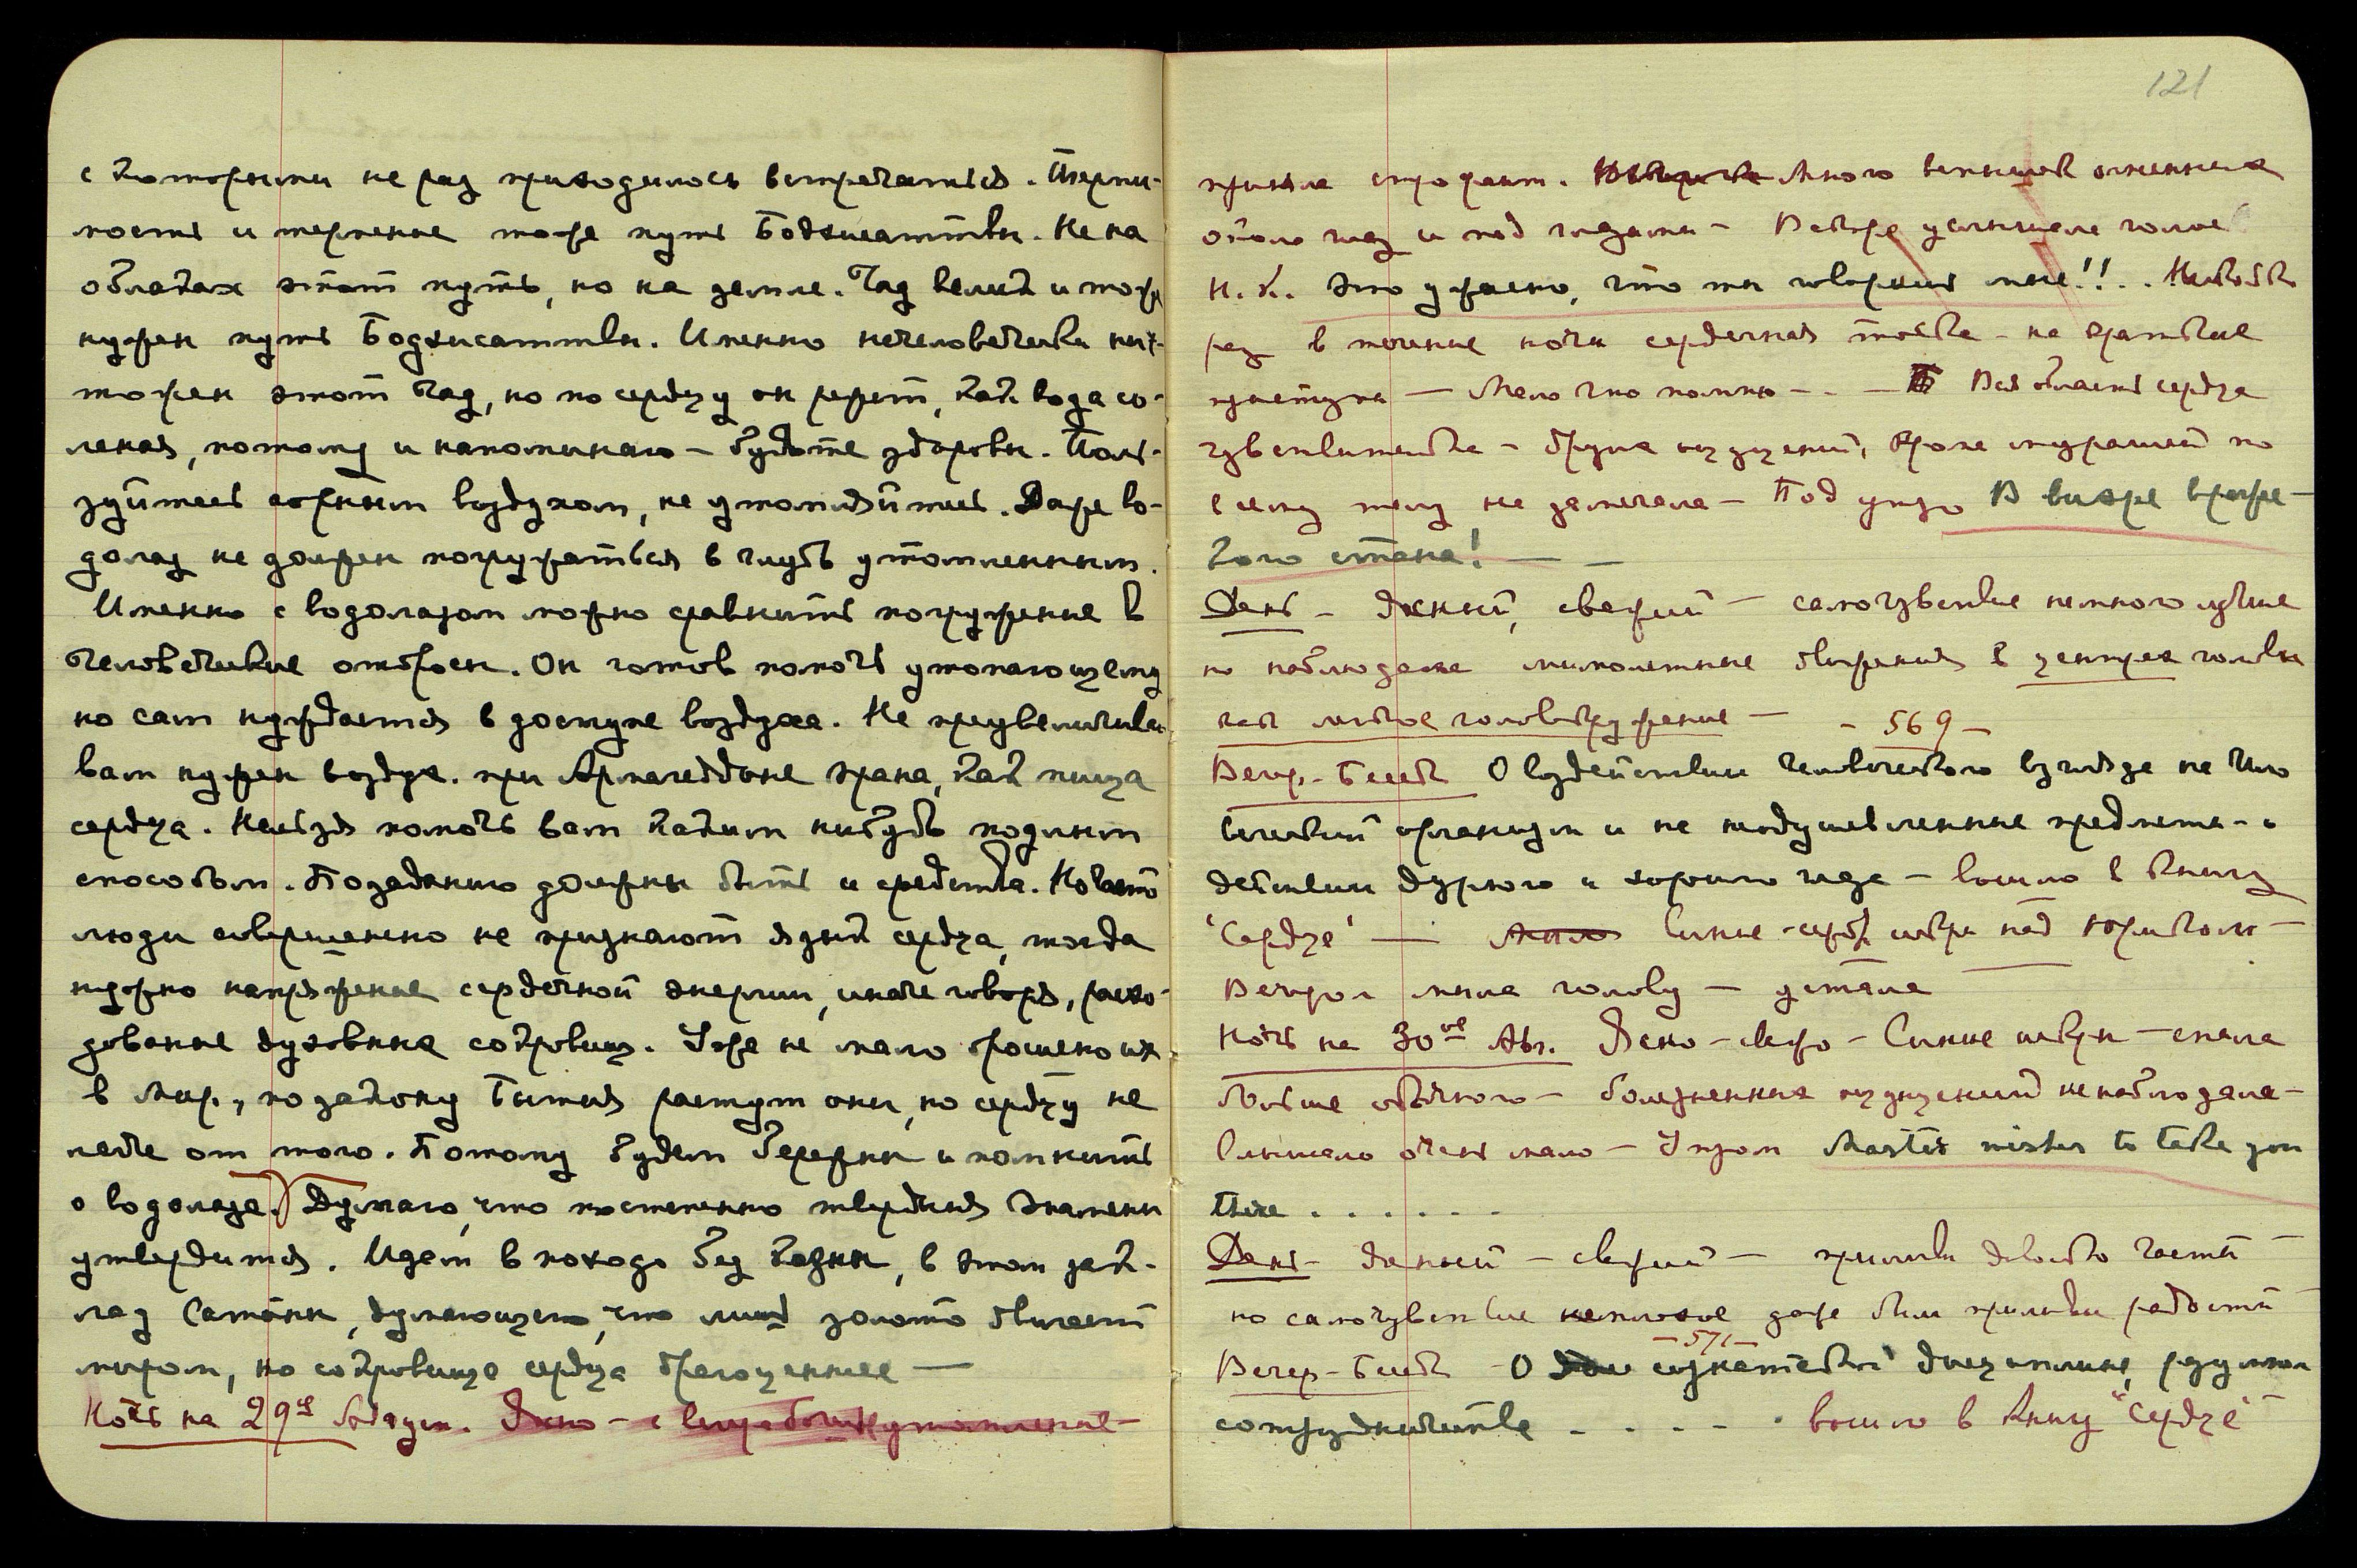 с которыми не раз приходилось встречаться. Терпи-
мость и терпение тоже путь Бодхисаттвы. Не на
облаках этот путь, но на земле. Чад велик и тоже
нужен путь Бодхисаттвы. Именно нечеловечески ничтожен
этот чад, но по сердцу он режет, как вода со-
леная, потому и напоминаю – будьте здоровы. Поль-
зуйтесь горным воздухом, не утомляйтесь. Даже во-
долаз не должен погружаться в глубь утомленным.
Именно с водолазом можно сравнить погружение в
человеческие отбросы. Он готов помочь утопающему
но сам нуждается в доступе воздуха. Не преувеличиваю
вам нужен воздух. при Армагеддоне прана, как пища
сердца. Нельзя помочь вам каким нибудь подлым
способом. По заданию должны быть и средства. Но часто
люди совершенно не признают язык сердца, тогда
нужно напряжение сердечной энергии, иначе говоря, расхо-
дование духовных сокровищ. Уже не мало брошено их
в Мир, по закону Бытия растут они, но сердцу не
легче от того. Потому будем бережны и помнить
о водолазе. Думаю, что постепенно твердыня знамени
утвердится. Идем в походе без казны, в этом зак-
лад Сатаны, думающего, что лишь золото двигает
миром, но сокровище сердца драгоценнее —
Ночь на 29ое Август. Ясно –
приняла строфант. Много вспышек огненных
около глаз и под глазами – Вскоре услышала голос
Н.К. это ужасно, что ты говоришь мне!! . . Несколько
раз в течение ночи сердечная тоска – на краткие
промежутки — Мало что помню – . — Вся область сердца
чувствительна – других ощущений, кроме мурашей по
всему телу не замечала – Под утро В вихре враже-
ского стана! — —
День – Ясный, свежий – самочувствие немного лучше
но наблюдала мимолетные движения в центрах головы
как легкое головокружение — – 569 –
Вечер – Беседа О воздействии человеческого взгляда на чело
веческий организм и на неодушевленные предметы – о
действии дурного и хорошего глаза – вошло в Книгу
'Сердце' — Синие – сереб. искры над
Вечером мыла голову — устала
Ночь на 30ое Авг. Ясно – свежо – Синие искры – спала
больше обычного – болезненных ощущений не наблюдала –
Слышала очень мало – Утром Master wishes to take you
there . . . . . .
День – Ясный – свежий — приливы довольно часты –
но самочувствие неплохое даже были приливы радости
– 571 –
Вечер – Беседа – О сознательной дисциплине, разумном
сотрудничестве . . . . вошло в Книгу "Сердце"
121